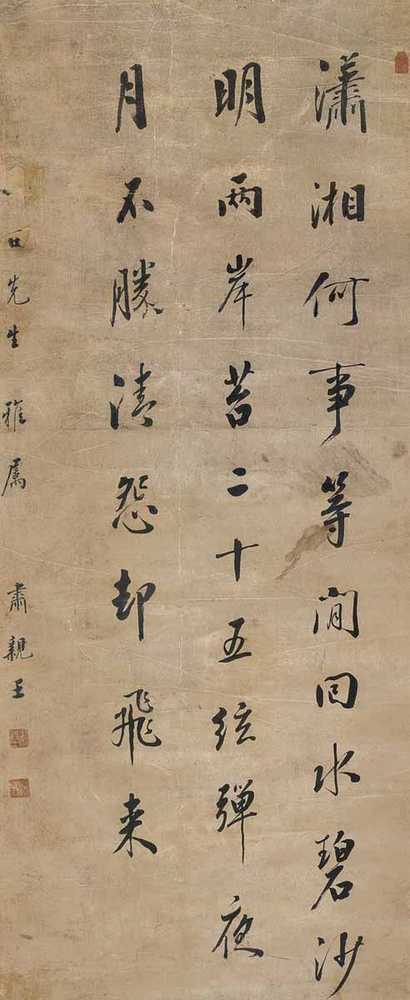 潇湘何事等閒回水碧沙
明兩岸苔二十五弦彈夜
月不勝清怨却飛来
石先生雅屬 肅親王